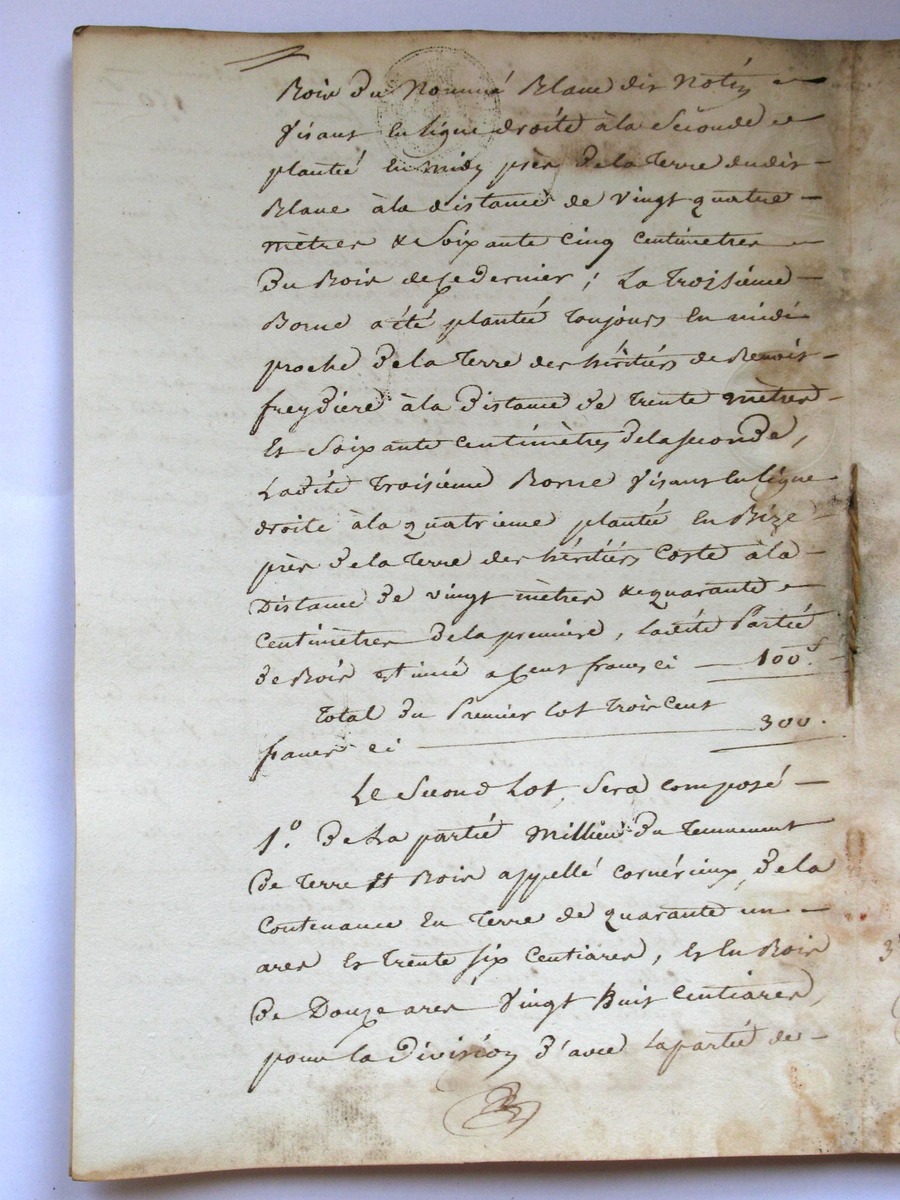 Bois du Nommé Blanc dit Notés
Visant en ligne droite à la Seconde
plantée En midy près de la Terre dudit
Blanc à la distance de Vingt quatre
mètres & Soixante Cinq Centimetres
du Bois de ce dernier ; La Troisième
Borne a été plantée Toujours En midi
proche de la Terre des héritiers de Benoit
freydiere à la Distance de Trente mètres
Et Soixante Centimètres de la seconde,
Ladite Troisième Borne Visant En ligne
droite à la quatrieme plantée En Bize
près de la Terre des héritiers Coste à la
Distance de vingt mètres & quarante
Centimètres de la première, ladite Partie
de Bois Estimée a Cent francs ci 100.f
Total du Premier lot Trois Cent
francs ci 300.
Le Second Lot Sera composé
1.º De La partie Millieu du Tennement
de Terre Et Bois appellé cornérieux, de la
Contenance En Terre de quarante un
ares Et Trente Six Centiares, Et En Bois
de Douze ares Vingt huit Centiares,
pour la Division d'avec La partie de